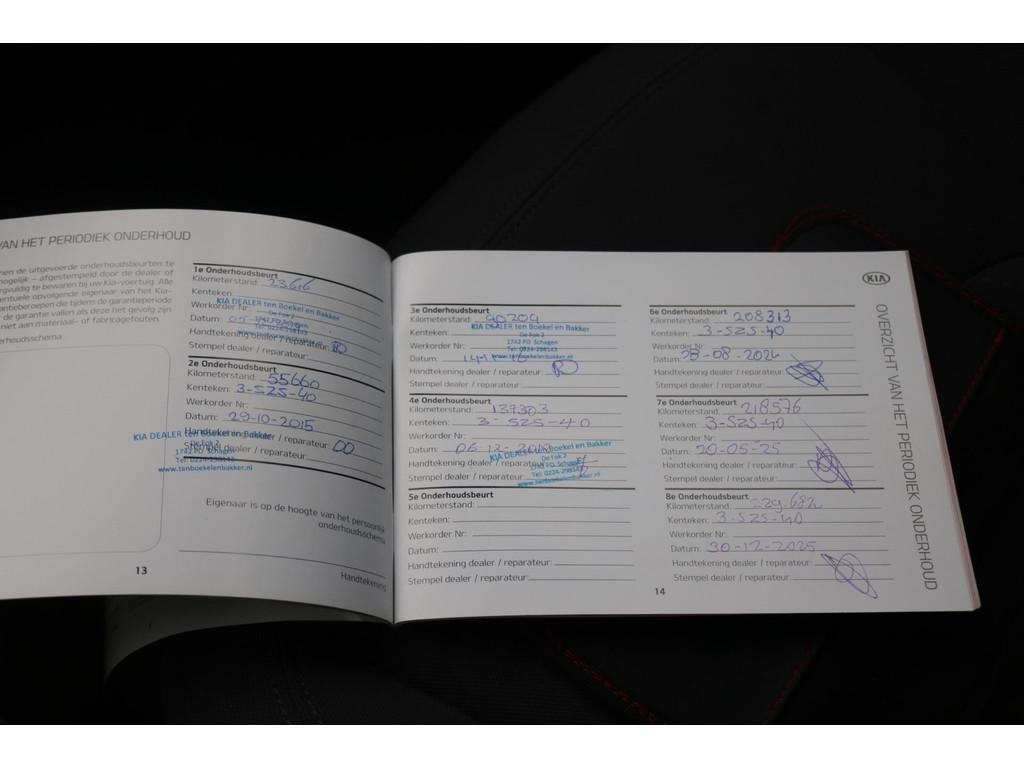 VAN HET PERIODIEK ONDERHOUD
nen de uitgevoerde onderhoudsbeurten te
mogelijk – afgestempeld door de dealer of
rgvuldig te bewaren bij uw Kia-voertuig. Alle
entuele opvolgende eigenaar van het Kia-
antieberoepen die tijdens de garantieperiode
de garantie vallen als deze het gevolg zijn
niet aan materiaal- of fabricagefouten.
erhoudsschema:
1e Onderhoudsbeurt
Kilometerstand: 23616
Kenteken:
KIA DEALER ten Boekel en Bakker
De Fok 2
Werkorder Nr:
1742 PD Schagen
Datum:
Tel: 0224-298143
www.tenboekelenbakker.nl
Handtekening dealer / reparateur:
Stempel dealer / reparateur:
2e Onderhoudsbeurt
Kilometerstand: 55660
Kenteken: 3-SZS-40
Werkorder Nr:
Datum: 29-10-2015
Handtekening dealer / reparateur:
Stempel dealer / reparateur:
KIA DEALER ten Boekel en Bakker
De Fok 2
1742 PD Schagen
Tel: 0224-298143
www.tenboekelenbakker.nl
Eigenaar is op de hoogte van het persoonlijk
onderhoudsschema
Handtekening
13
3e Onderhoudsbeurt
Kilometerstand: 90209
Kenteken:
KIA DEALER ten Boekel en Bakker
De Fok 2
Werkorder Nr:
1742 PD Schagen
Tel: 0224-298143
Datum:
www.tenboekelenbakker.nl
Handtekening dealer / reparateur:
Stempel dealer / reparateur:
4e Onderhoudsbeurt
Kilometerstand: 137303
Kenteken: 3-SZS-40
Werkorder Nr:
Datum: 06-12-
KIA DEALER ten Boekel en Bakker
De Fok 2
Handtekening dealer / reparateur:
1742 PD Schagen
Tel: 0224-298143
Stempel dealer / reparateur:
www.tenboekelenbakker.nl
5e Onderhoudsbeurt
Kilometerstand:
Kenteken:
Werkorder Nr:
Datum:
Handtekening dealer / reparateur:
Stempel dealer / reparateur:
6e Onderhoudsbeurt
Kilometerstand: 208313
Kenteken: 3-SZS-40
Werkorder Nr:
Datum: 28-08-2024
Handtekening dealer / reparateur:
Stempel dealer / reparateur:
7e Onderhoudsbeurt
Kilometerstand: 218576
Kenteken: 3-SZS-40
Werkorder Nr:
Datum: 20-05-25
Handtekening dealer / reparateur:
Stempel dealer / reparateur:
8e Onderhoudsbeurt
Kilometerstand: 229.682
Kenteken: 3-SZS-40
Werkorder Nr:
Datum: 30-12-2025
Handtekening dealer / reparateur:
Stempel dealer / reparateur:
14
KIA
OVERZICHT VAN HET PERIODIEK ONDERHOUD